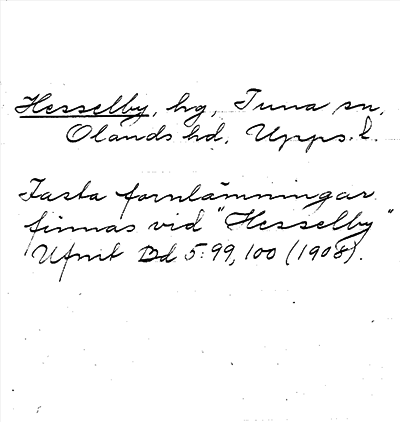 Hesselby, hg, Tuna sn,
Olands hd, Upps. l.
Fasta fornlämningar
finnas vid "Hesselby"
Ufmt Bd 5:99, 100 (1908).